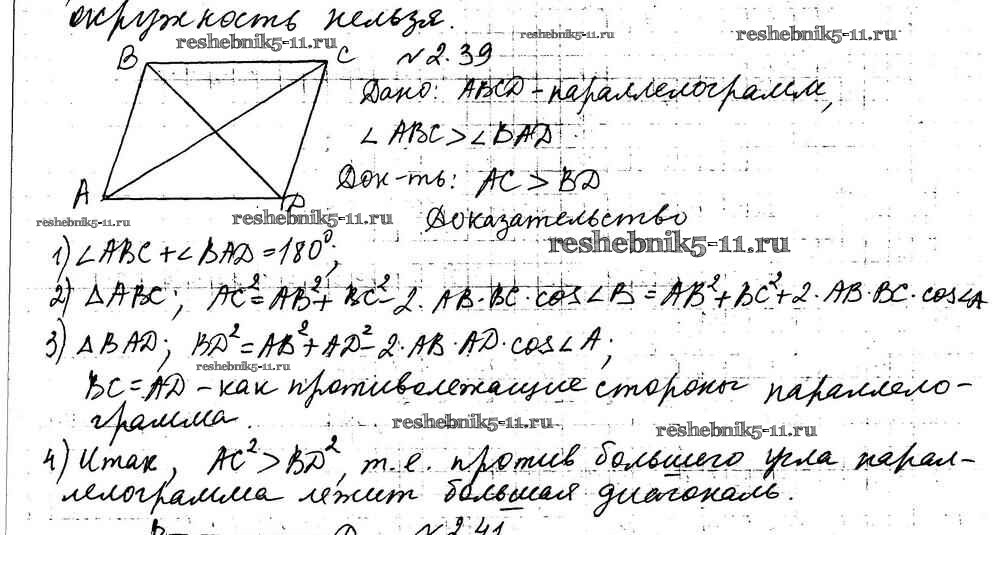 окружность нельзя.
reshebnik5-11.ru
reshebnik5-11.ru
reshebnik5-11.ru
B C №2.39
Дано: ABCD - параллелограмм,
∠ABC > ∠BAD
Док-ть: AC > BD
A D
reshebnik5-11.ru
reshebnik5-11.ru
Доказательство
reshebnik5-11.ru
1) ∠ABC + ∠BAD = 180°;
2) △ABC; AC² = AB² + BC² - 2·AB·BC·cos∠B = AB² + BC² + 2·AB·BC·cos∠A
3) △BAD; BD² = AB² + AD² - 2·AB·AD·cos∠A;
reshebnik5-11.ru
BC = AD - как противолежащие стороны параллело-
грамма.
reshebnik5-11.ru
reshebnik5-11.ru
4) Итак, AC² > BD², т.е. против большего угла парал-
лелограмма лежит большая диагональ.
№2.41